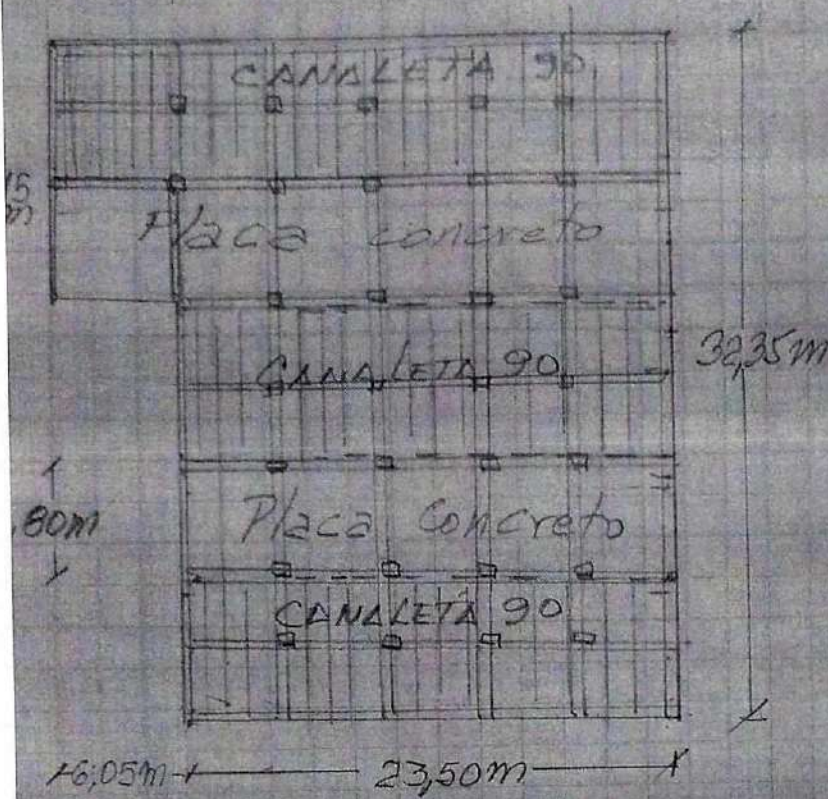 CANALETA 90
15
m
Placa concreto
CANALETA 90
32,35m
,80m
Placa Concreto
CANALETA 90
6,05m
23,50m